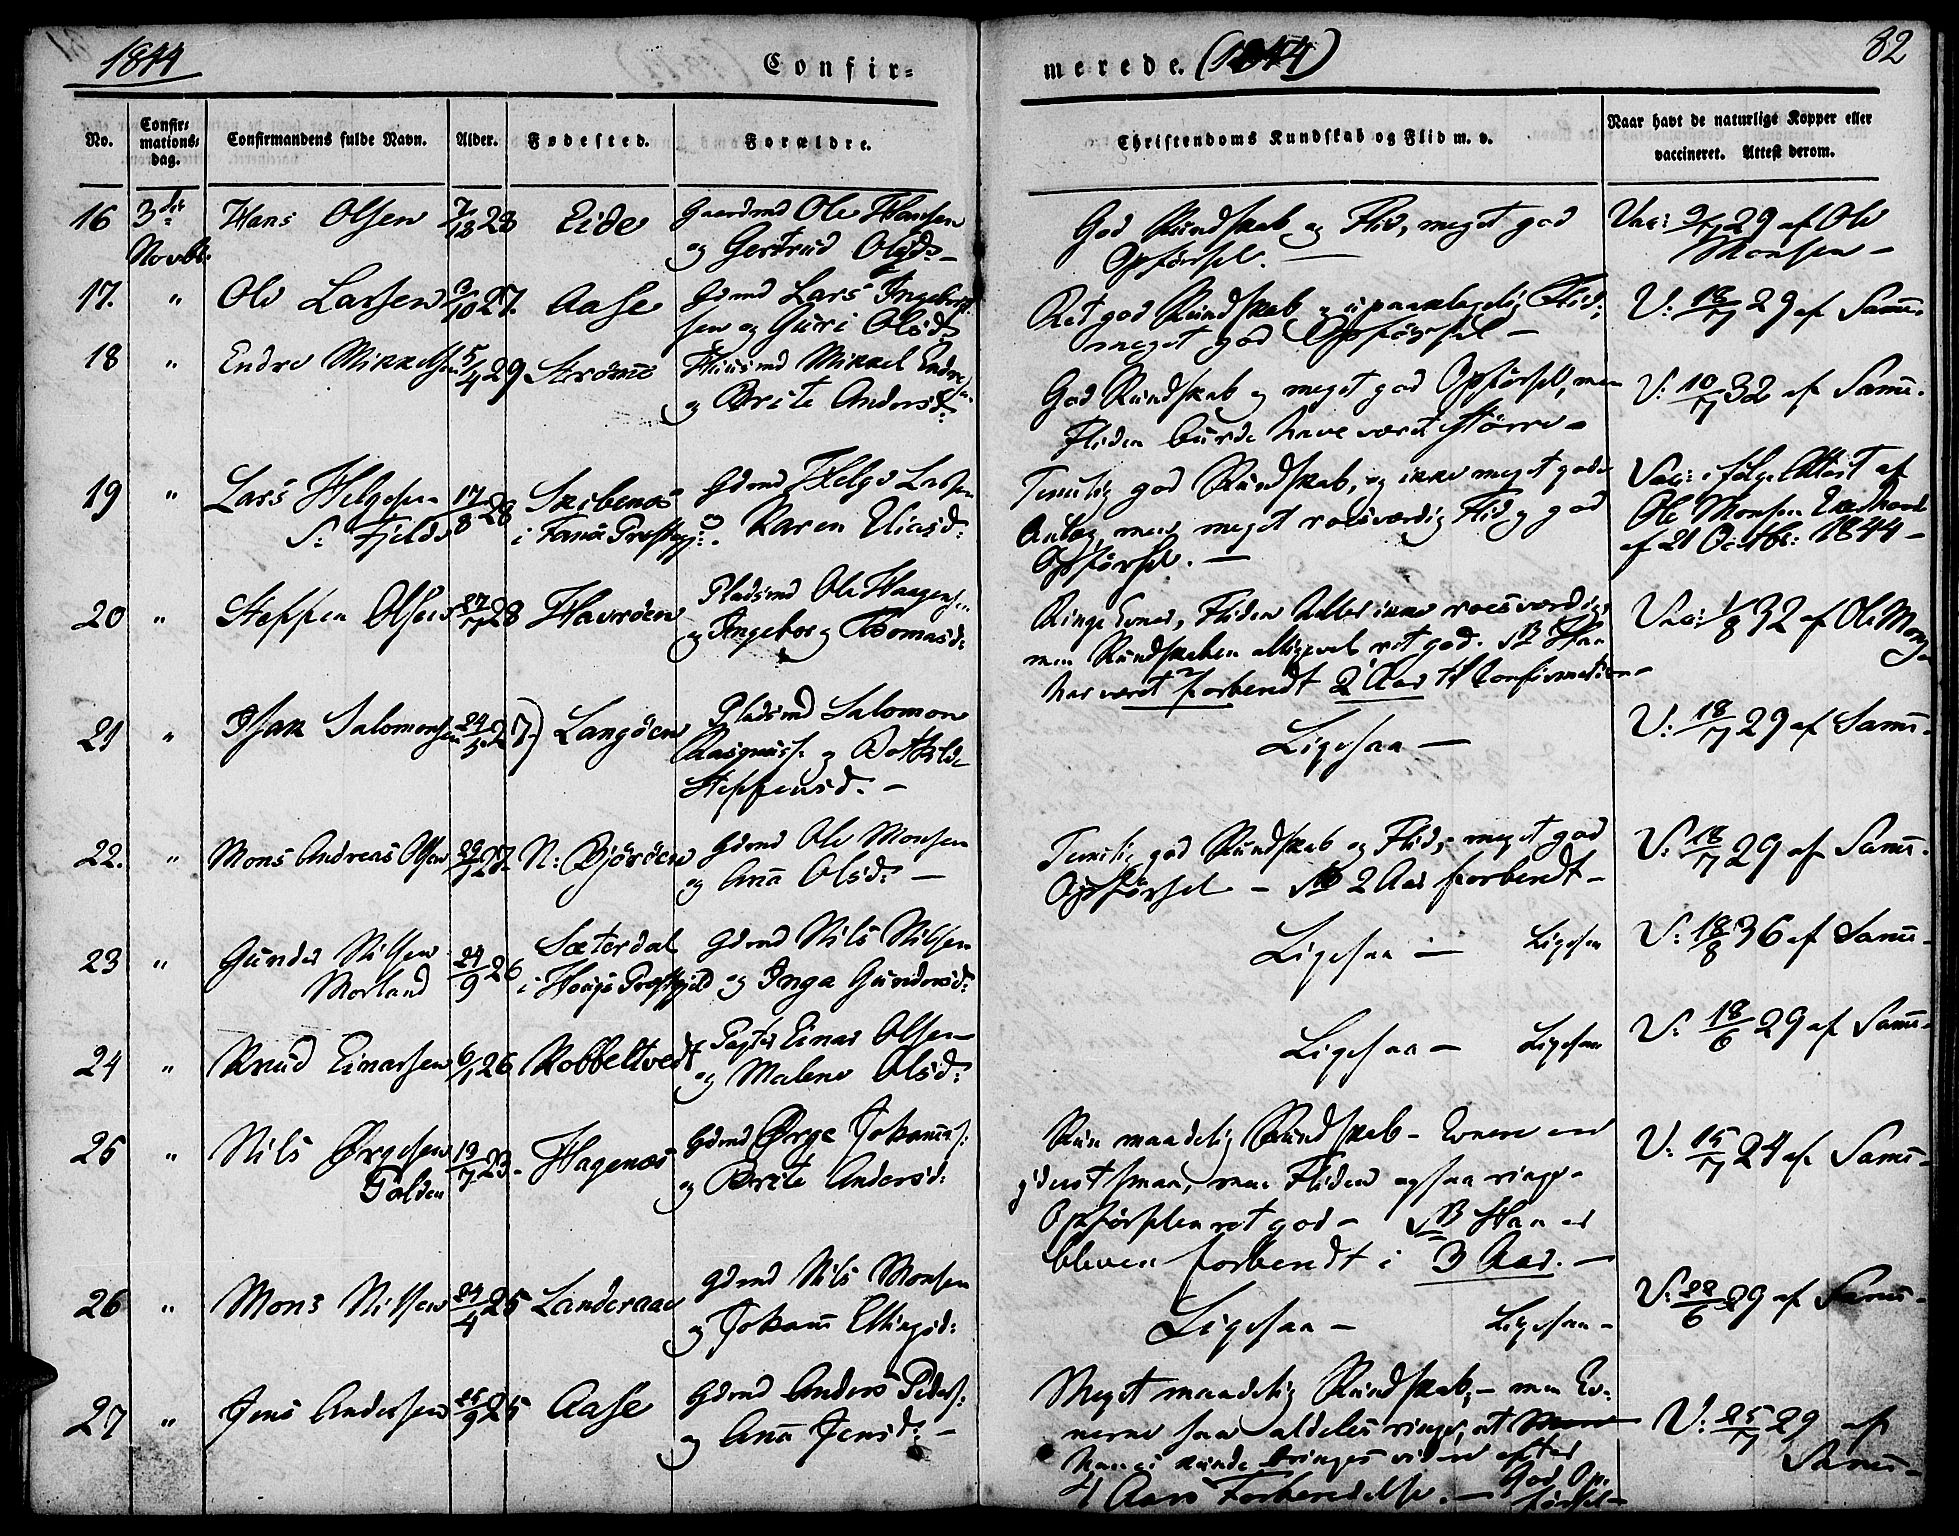 1844
Confir=
merede. (1844)
82
No.
Confir=
mations=
dag.
Confirmandens fulde Navn.
Alder.
Fødested.
Forældre.
Christendoms Kundskab og Flid m. v.
Naar havt de naturlige Kopper eller
vaccineret. Attest derom.
16 3die Hans Olsen 7/12 28 Eide Gaardmd Ole Hansen
Novbr. og Gertrud Olsd: –
God Kundskab og Flid, meget god
Opførsel. –
Vac: 9/7 29 af Ole
Monsen –
17. " Ole Larsen 9/10 27. Aase Gdmd Lars Ingebrigt
sen og Guri Olsd:
Ret god Kundskab og upaaklagelig Flid;
meget god Opførsel –
V: 18/7 29 af Samme
18 " Endre Mikkelsen 5/4 29 Strømme Huusmd Mikkel Endresen
og Brite Andersd:
God Kundskab og meget god Opførsel, men
Fliden burde have været større –
V: 10/7 32 af Samme.
19 " Lars Helgesen 17/8 28 Skibenes Gdmd Helge Larsen
S: Fjelde i Fanø Præstegj: og Karen Eliasd:
Temelig god Kundskab, og ikke meget gode
Anlæg, men meget roesværdig Flid og god
Opførsel. –
Vac: ifølge Attest af
Ole Monsen
af 21 Octbr: 1844 –
20 " Steffen Olsen 27/7 28 Havrøen Pladsmd Ole Haagensen
og Ingeborg Thomasd:
Ringe Evner, Fliden ikke roesværdig
men Kundskaben alligevel ret god. NB Han
har været forberedt 2 Aar til Confirmation –
Vac: 1/8 32 af Ole Mons
21 " Isak Salomonsen 24/5 27) Langøen Pladsmd Salomon
Rasmuss: og Bothilde
Steffensd: –
Ligesaa –
V: 18/7 29 af Samme –
22. " Mons Andreas Olsen 27. N: Bjørøen Gdmd Ole Monsen
og Anna Olsd: –
Temelig god Kundskab og Flid, – meget god
Opførsel – NB 2 Aar forberedt –
V: 18/7 29 af Samme.
23 " Gunder Nilsen 24/9 26 Sæterdal Gdmd Nils Nilsen
Morland i Houge Præstegjeld og Inga Gundersd:
Ligesaa – Ligesaa
V: 18/8 36 af Samme –
24 " Knud Einarsen 6/1 26 Kobbeltvedt Pagter Einar Olsen
og Malene Olsd:
Ligesaa – Ligesaa
V: 18/6 29 af Samme –
25 " Nils Ørgesen 19/7 23 – Hagenes Gdmd Ørge Johanness:
Golden og Brite Andersd:
Kun maadelig Kundskab – Evnerne ere
yderst smaa, men Fliden ogsaa ringe –
Opførselen ret god – NB Han er
bleven forberedt i 3 Aar. –
V: 15/7 24 af Samme –
26 " Mons Nilsen 24/4 25 Landeraae Gdmd Nils Monsen
og Johanne Ellingsd:
Ligesaa – Ligesaa –
V: 22/6 29 af Samme –
27 " Jens Andersen 25/9 25 Aase Gdmd Anders Peders:
og Anna Jensd: –
Meget maadelig Kundskab, – men Ev=
nerne saa aldeles ringe, at
han ei kunde bringes videre efter
4 Aars Forberedelse. – God Op=
førsel –
V: 25/7 29 af
Samme –